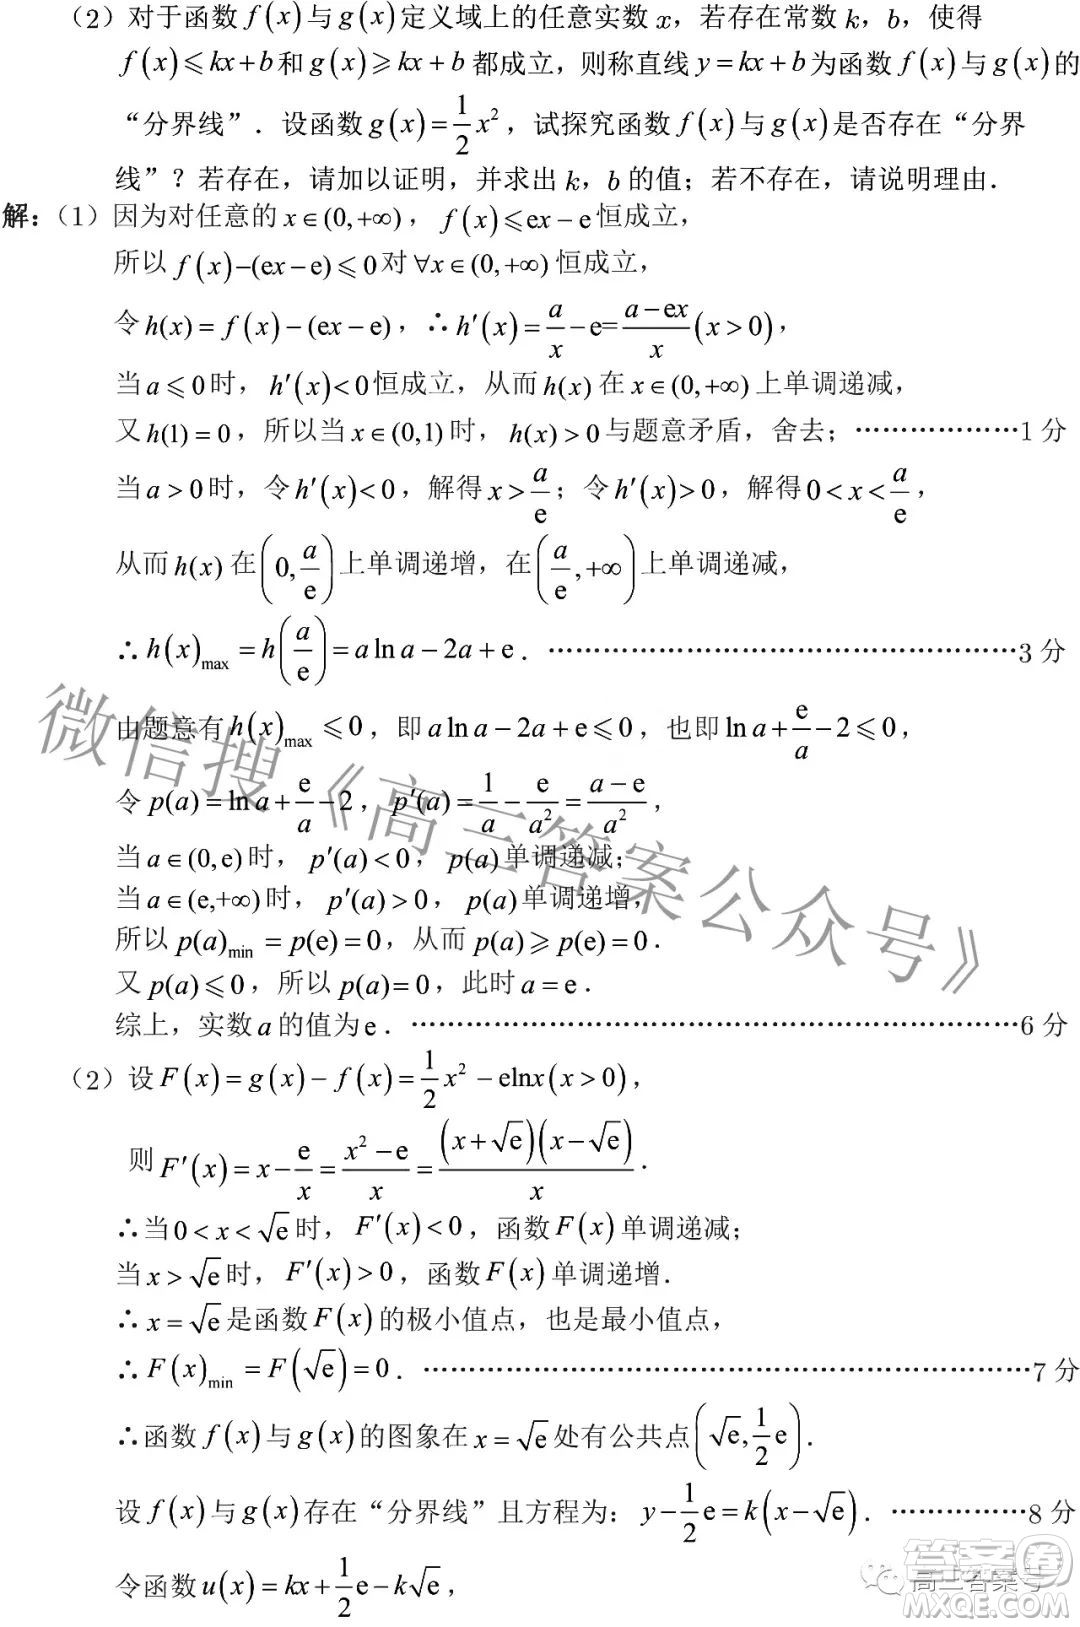 （2）对于函数f(x)与g(x)定义域上的任意实数x，若存在常数k，b，使得
f(x)⩽kx+b和g(x)⩾kx+b都成立，则称直线y=kx+b为函数f(x)与g(x)的
“分界线”．设函数g(x)=1/2 x²，试探究函数f(x)与g(x)是否存在“分界
线”？若存在，请加以证明，并求出k，b的值；若不存在，请说明理由．
解：（1）因为对任意的x∈(0,+∞)，f(x)⩽ex−e恒成立，
所以f(x)−(ex−e)⩽0对∀x∈(0,+∞)恒成立，
令h(x)=f(x)−(ex−e)，∴h′(x)=a/x−e=(a−ex)/x(x>0)，
当a⩽0时，h′(x)<0恒成立，从而h(x)在x∈(0,+∞)上单调递减，
又h(1)=0，所以当x∈(0,1)时，h(x)>0与题意矛盾，舍去；………………1分
当a>0时，令h′(x)<0，解得x>a/e；令h′(x)>0，解得0<x<a/e，
从而h(x)在(0,a/e)上单调递增，在(a/e,+∞)上单调递减，
∴h(x)max=h(a/e)=a ln a−2a+e．……………………………………………3分
由题意有h(x)max⩽0，即a ln a−2a+e⩽0，也即ln a+e/a−2⩽0，
令p(a)=ln a+e/a−2，p′(a)=1/a−e/a²=(a−e)/a²，
当a∈(0,e)时，p′(a)<0，p(a)单调递减；
当a∈(e,+∞)时，p′(a)>0，p(a)单调递增，
所以p(a)min=p(e)=0，从而p(a)⩾p(e)=0．
又p(a)⩽0，所以p(a)=0，此时a=e．
综上，实数a的值为e．…………………………………………………………6分
（2）设F(x)=g(x)−f(x)=1/2 x²−elnx(x>0)，
则F′(x)=x−e/x=(x²−e)/x=(x+√e)(x−√e)/x．
∴当0<x<√e时，F′(x)<0，函数F(x)单调递减；
当x>√e时，F′(x)>0，函数F(x)单调递增．
∴x=√e是函数F(x)的极小值点，也是最小值点，
∴F(x)min=F(√e)=0．…………………………………………………………7分
∴函数f(x)与g(x)的图象在x=√e处有公共点(√e,1/2 e)．
设f(x)与g(x)存在“分界线”且方程为：y−1/2 e=k(x−√e)．……………8分
令函数u(x)=kx+1/2 e−k√e，
微信搜《高三答案公众号》
高三答案号
答案圈
MXQE.COM